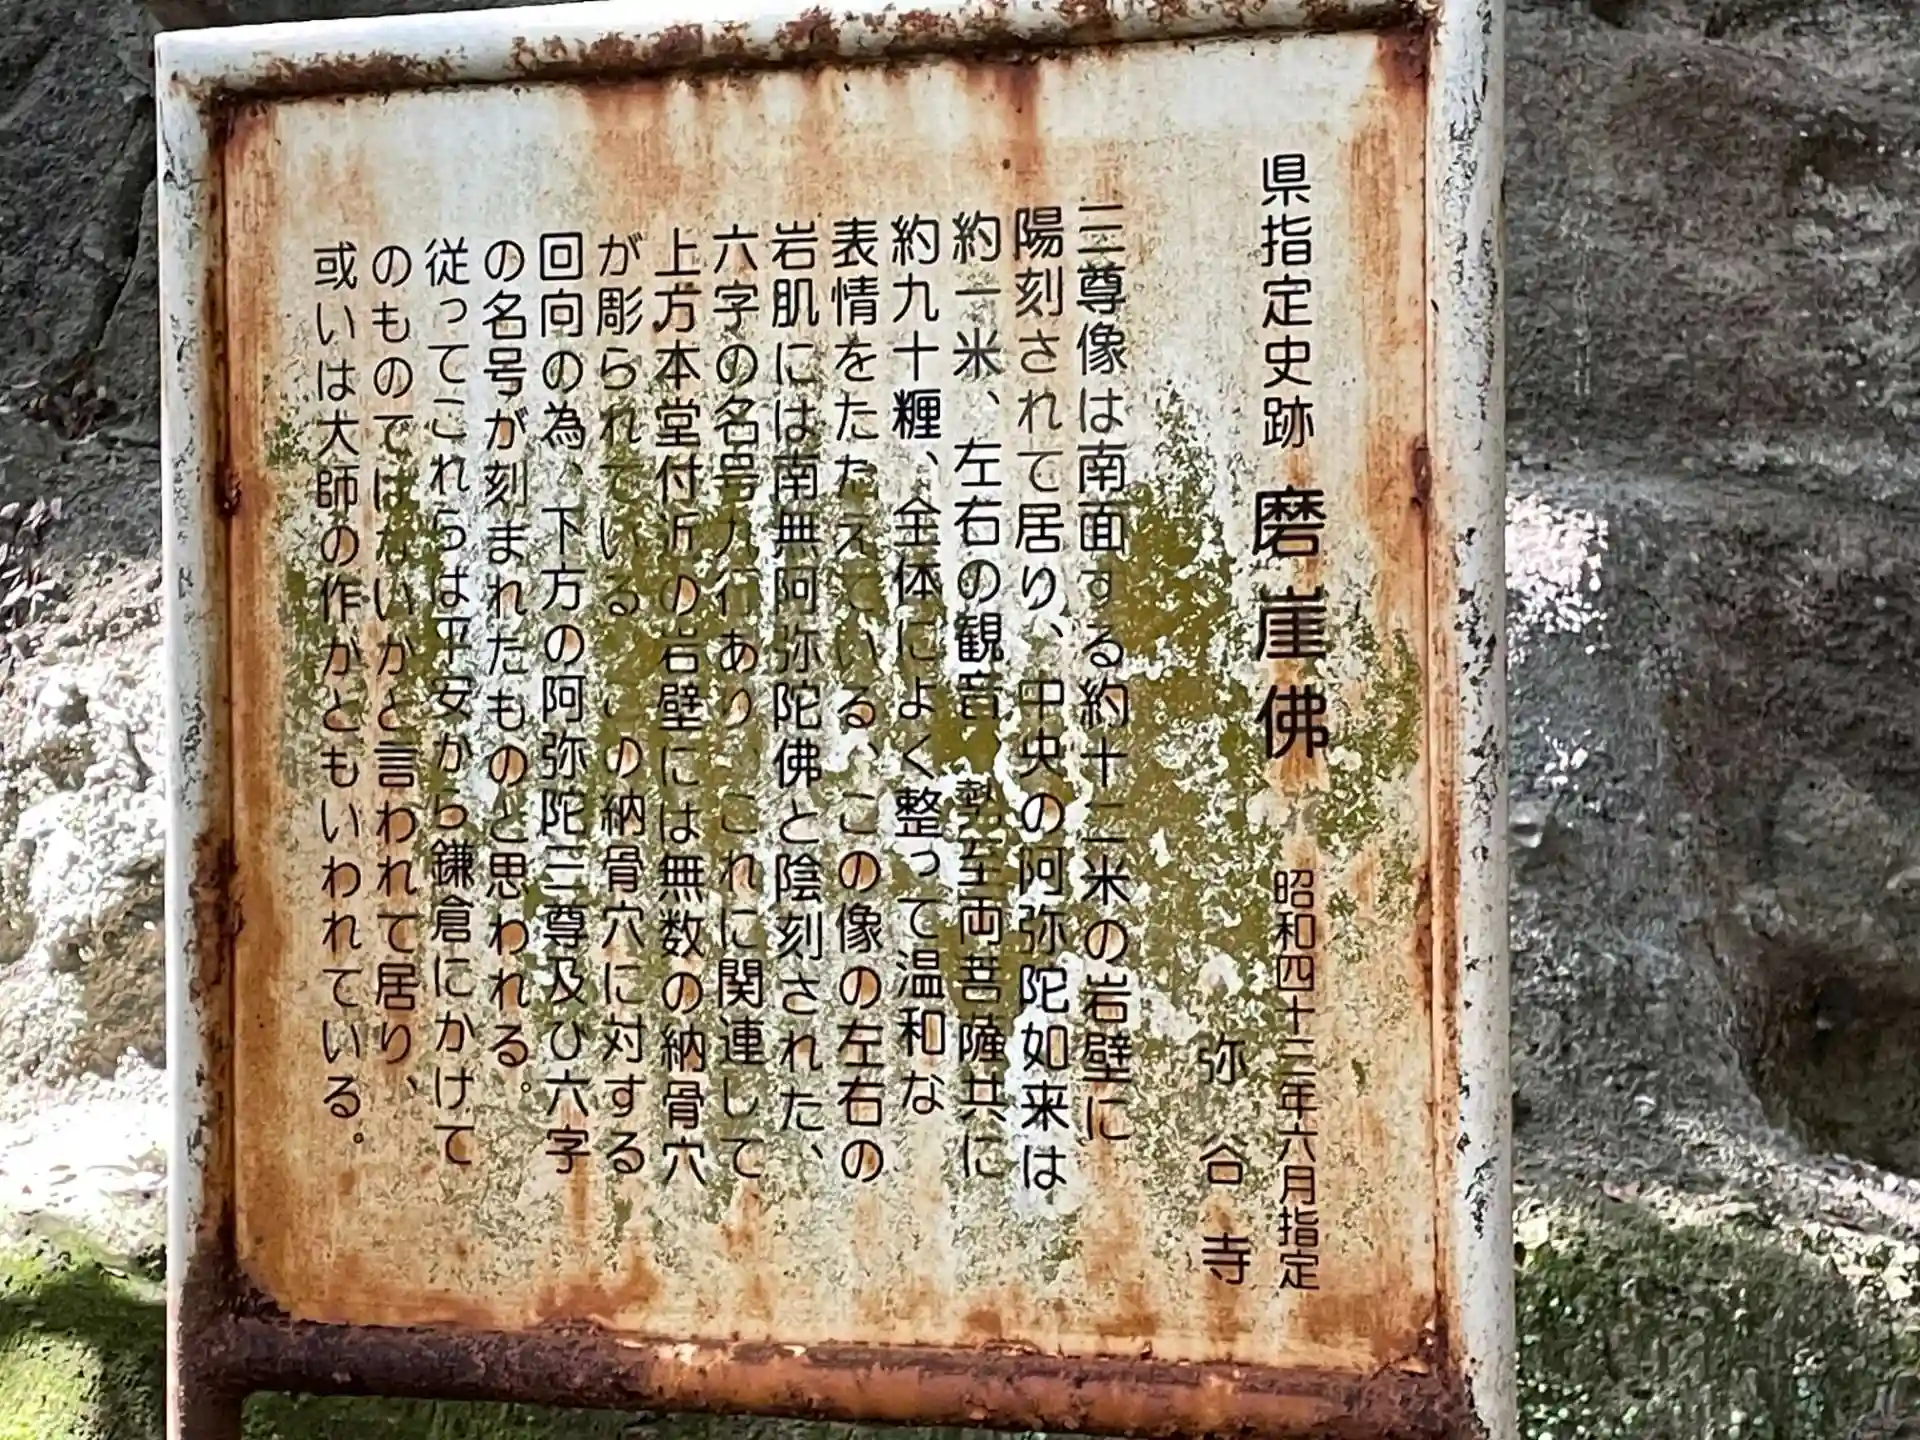 県指定史跡 磨崖佛 昭和四十二年六月指定
弥谷寺
三尊像は南面する約十二米の岩壁に
陽刻されて居り、中央の阿弥陀如来は
約一米、左右の観音、勢至両菩薩共に
約九十糎、全体によく整って温和な
表情をたたえている、この像の左右の
岩肌には南無阿弥陀佛と陰刻された、
六字の名号九行あり、これに関連して
上方本堂付近の岩壁には無数の納骨穴
が彫られている の納骨穴に対する
回向の為、下方の阿弥陀三尊及ひ六字
の名号が刻まれたものと思われる。
従ってこれらは平安から鎌倉にかけて
のものではないかと言われて居り、
或いは大師の作かともいわれている。